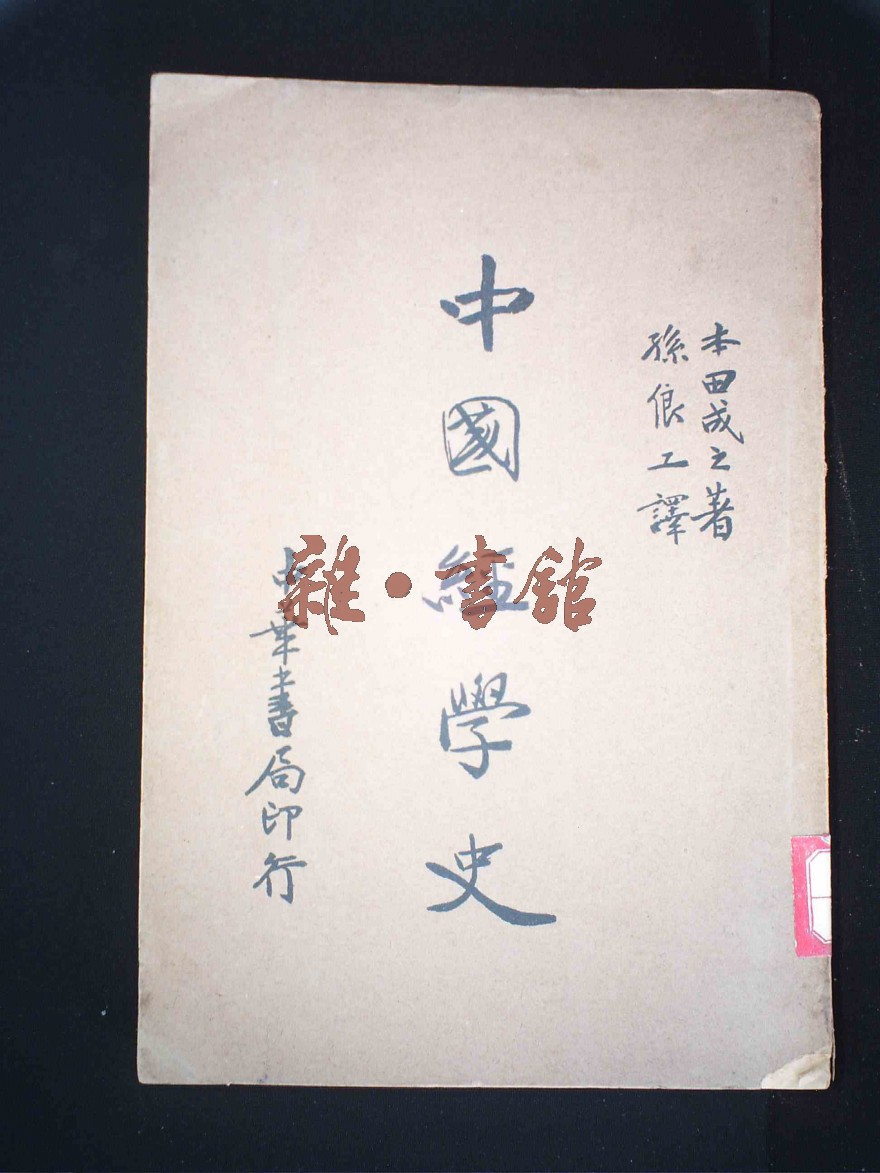 本田成之著
孫俍工譯
中國經學史
中華書局印行
雜·書館